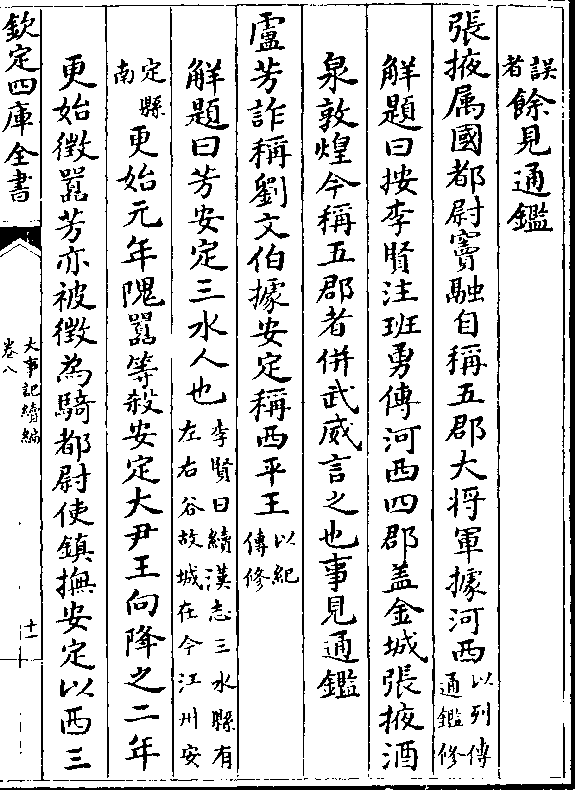 誤者餘見通鑑
張掖属國都尉竇融自稱五郡大将軍據河西以列傳通鑑修
解題曰按李賢注班勇傳河西四郡葢金城張掖酒
泉敦煌今稱五郡者併武威言之也事見通鑑
盧芳詐稱劉文伯據安定稱西平王以紀傳修
解題曰芳安定三水人也李賢曰續漢志三水縣有左右谷故城在今江州安
定縣南更始元年隗囂等殺安定大尹王向降之二年
更始徴囂芳亦被徴為騎都尉使鎮撫安定以西三
欽定四庫全書
大事記續編
卷八
十一